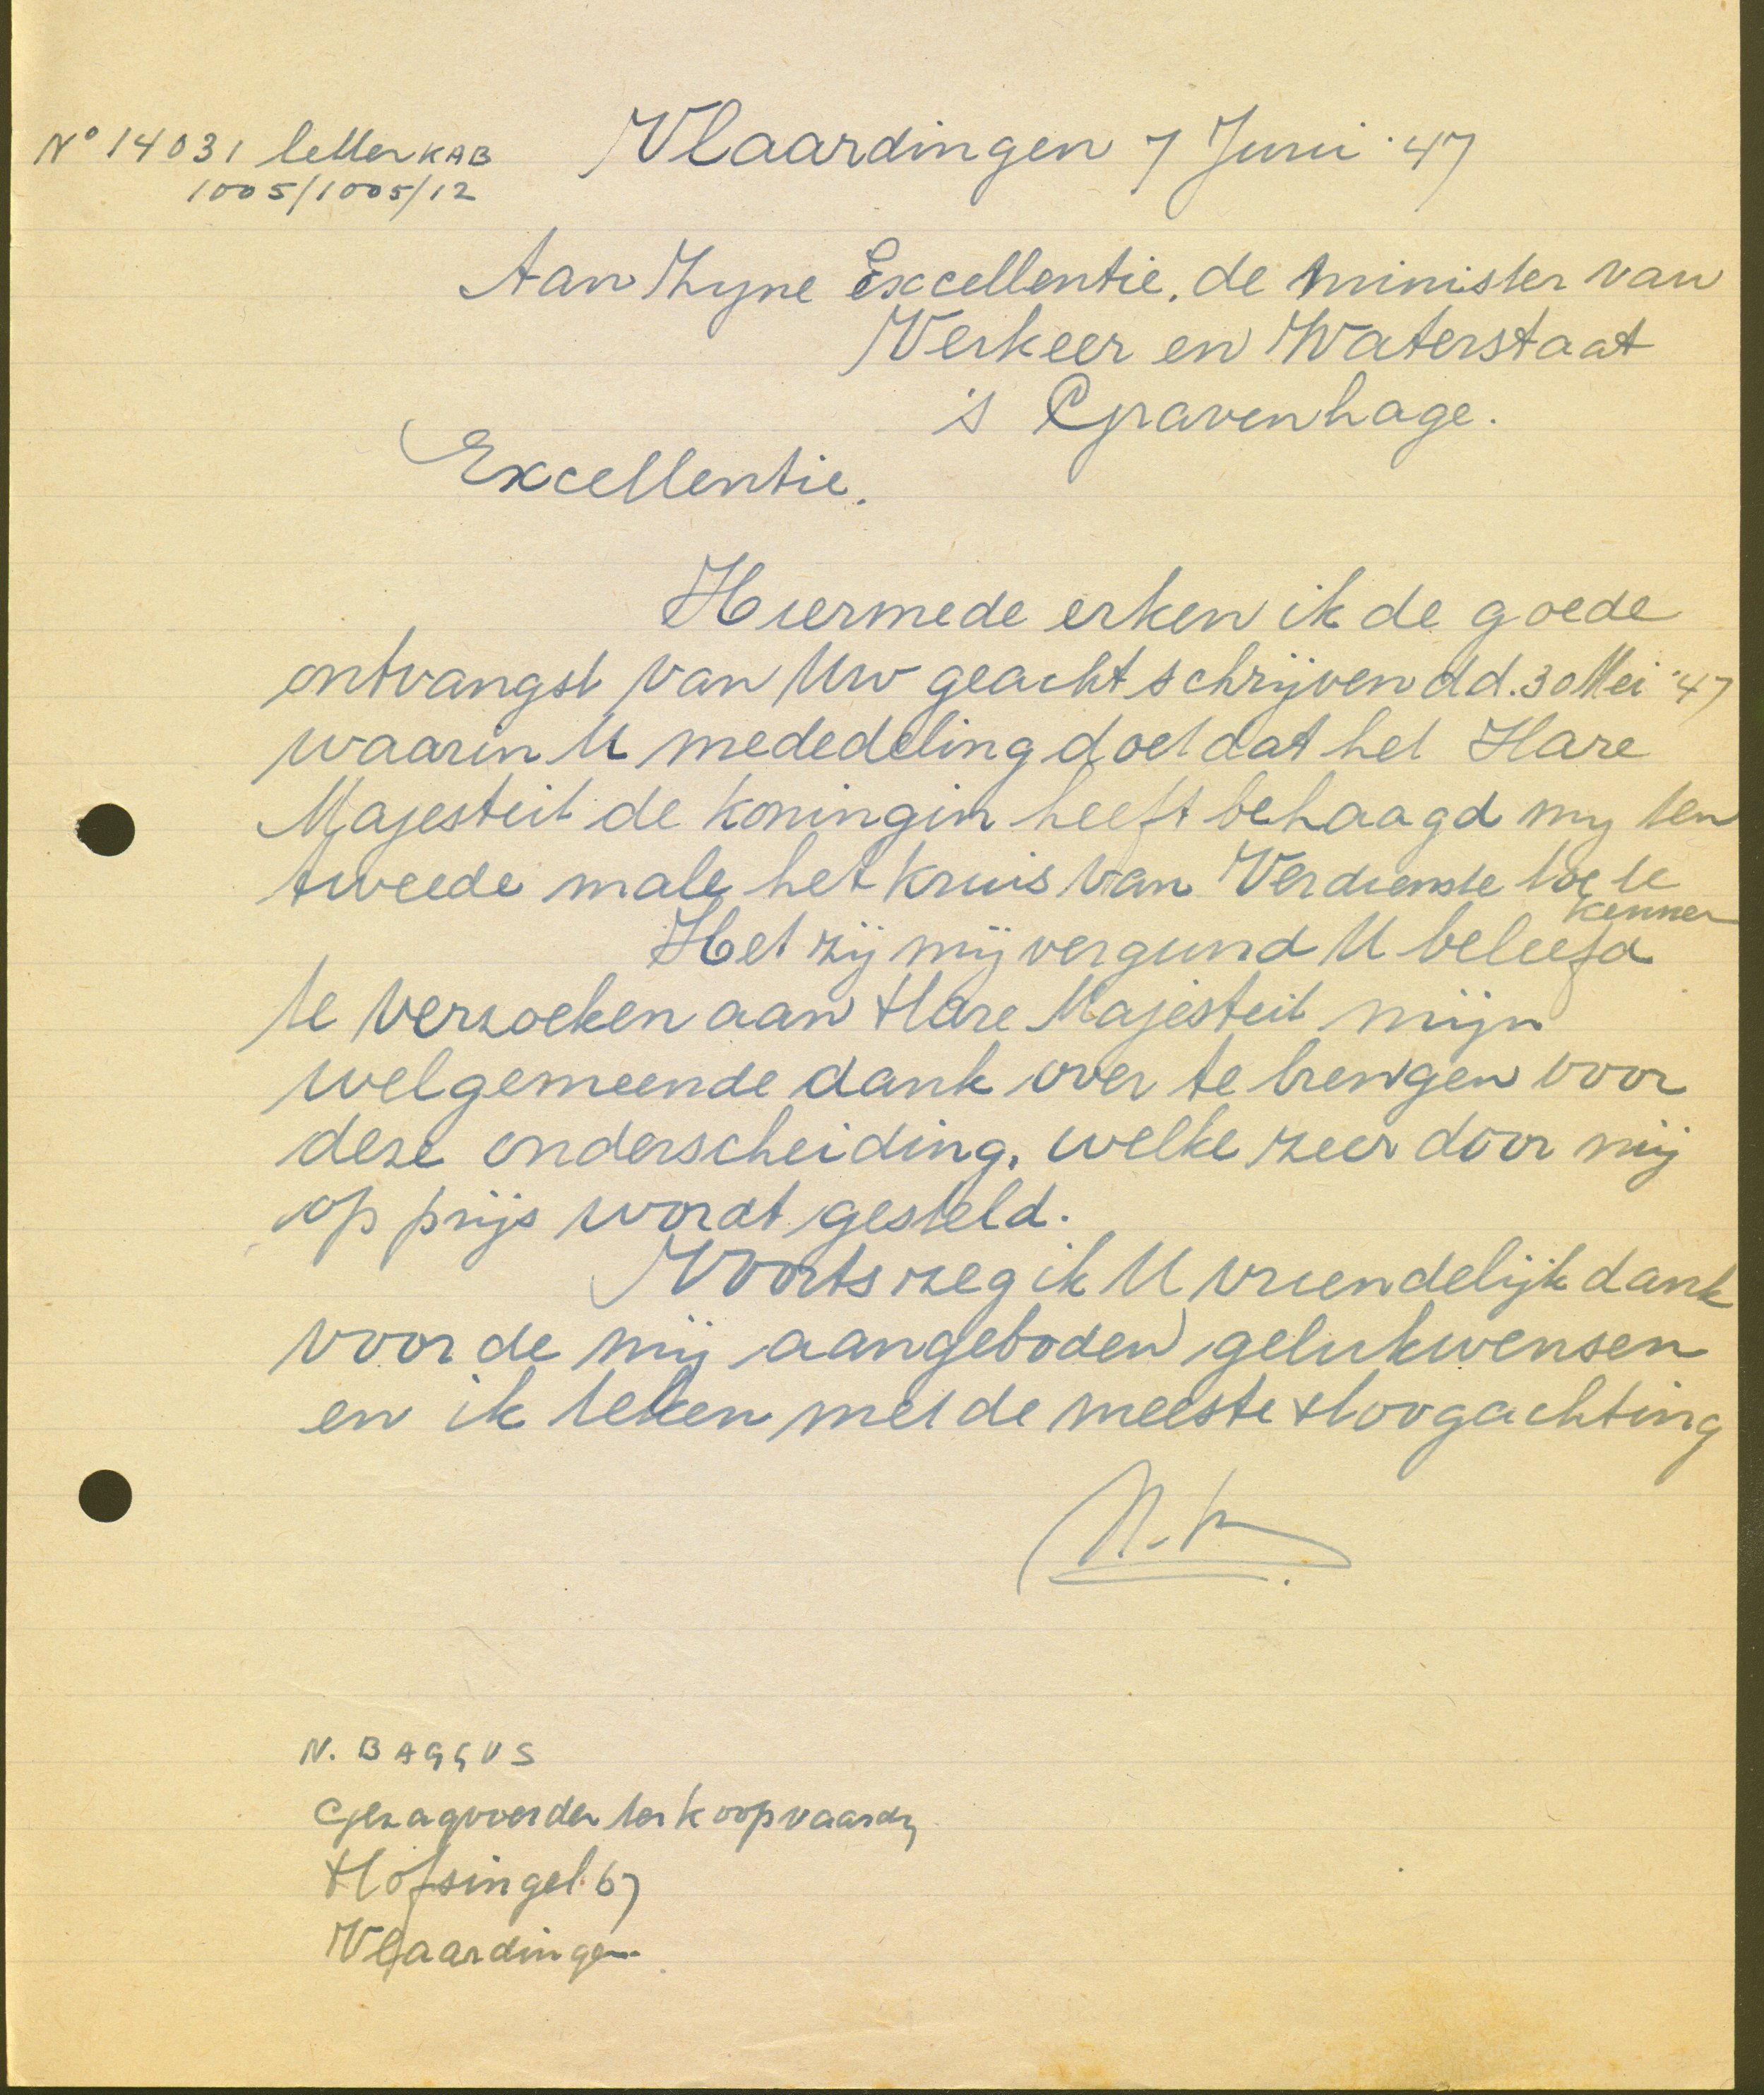 No 14031 letter KAB
1005/1005/12
Vlaardingen 7 Juni '47
Aan Zyne Excellentie, de Minister van
Verkeer en Waterstaat
's Gravenhage.
Excellentie.
Hiermede erken ik de goede
ontvangst van Uw geacht schrijven dd. 30 Mei '47
waarin U mededeling doet dat het Hare
Majesteit de Koningin heeft behaagd my ten
tweede male het Kruis van Verdienste toe te
kennen
Het zij mij vergund U beleefd
te verzoeken aan Hare Majesteit mijn
welgemeende dank over te brengen voor
deze onderscheiding, welke zeer door mij
op prijs wordt gesteld.
Voorts zeg ik U vriendelijk dank
voor de mij aangeboden gelukwensen
en ik teken met de meeste Hoogachting
N. BAGGUS
Gezagvoerder ter koopvaardy
Hofsingel 67
Vlaardingen.